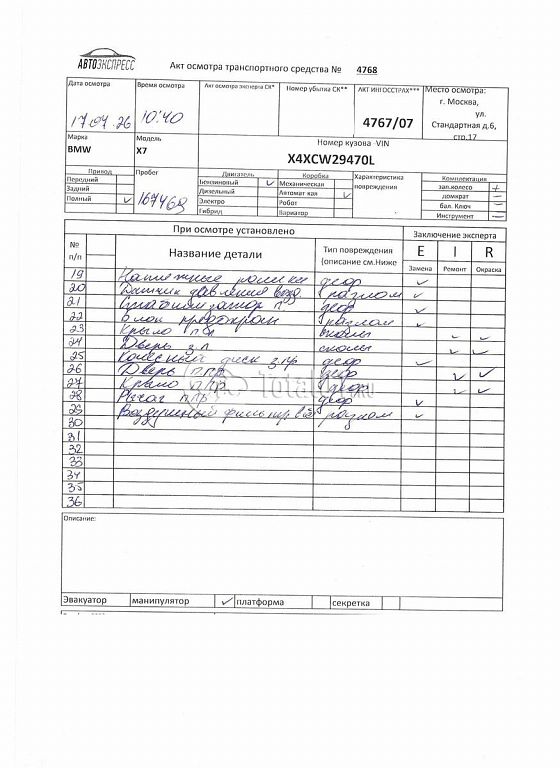 АВТОЭКСПРЕСС
Акт осмотра транспортного средства № 4768
Дата осмотра
Время осмотра
Акт осмотра эксперта СК*
Номер убытка СК**
АКТ ИНГОССТРАХ***
Место осмотра:
г. Москва,
ул.
Стандартная д.6,
стр.17
17.07.26
10:40
4767/07
Марка
Модель
Номер кузова VIN
BMW
X7
X4XCW29470L
Привод
Пробег
Двигатель
Коробка
Характеристика
повреждения
Комплектация
Передний
Задний
Полный
Бензиновый
Дизельный
Электро
Гибрид
Механическая
Автомат кая
Робот
Вариатор
зап.колесо +
домкрат –
бал. Ключ –
Инструмент –
При осмотре установлено
Заключение эксперта
№
п/п
Название детали
Тип повреждения
(описание см.Ниже
E I R
Замена Ремонт Окраска
19 Натяжные ролики деф
20 Датчик давления возд разлом
21 Стабилизатор п. деф
22 Блок предохран разлом
23 Крыло сколы
24 Дверь з.п сколы
25 Колесный диск з.пр деф
26 Дверь п.пр деф
27 Крыло п.пр деф
28 Рычаг п.пр деф
29 Воздушный фильтр разлом
30
31
32
33
34
35
36
Описание:
Эвакуатор манипулятор платформа секретка